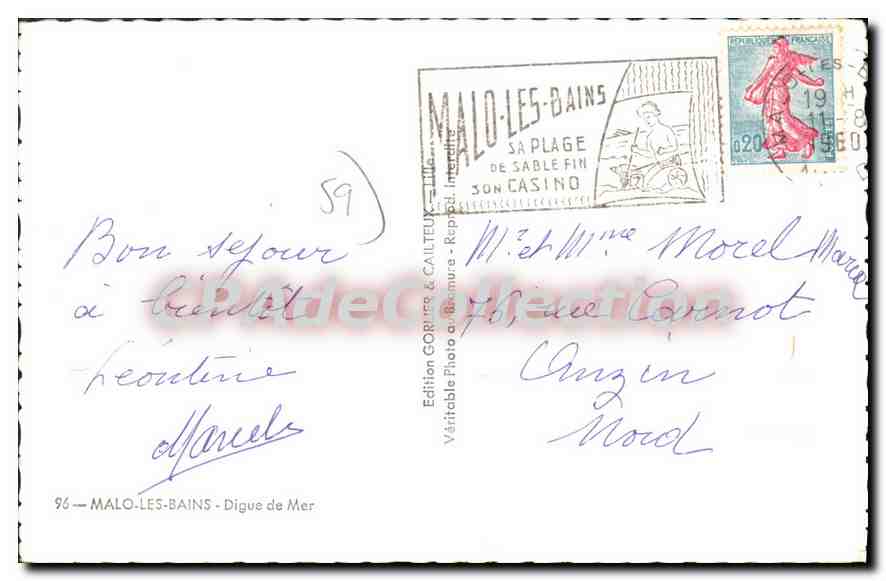 REPUBLIQUE FRANÇAISE
0,20
19 H
11-8
1960
MALO-LES-BAINS
SA PLAGE
DE SABLE FIN
SON CASINO
59
Bon séjour
à bientôt
Léontine
Marcel
Mr et Mme Morel Marcel
76, rue
Anzin
Nord
Edition GORLIER & CAILTEUX — Lille
Véritable Photo au Bromure - Reprod. Interdite
CPAdeCollection
96 — MALO-LES-BAINS - Digue de Mer